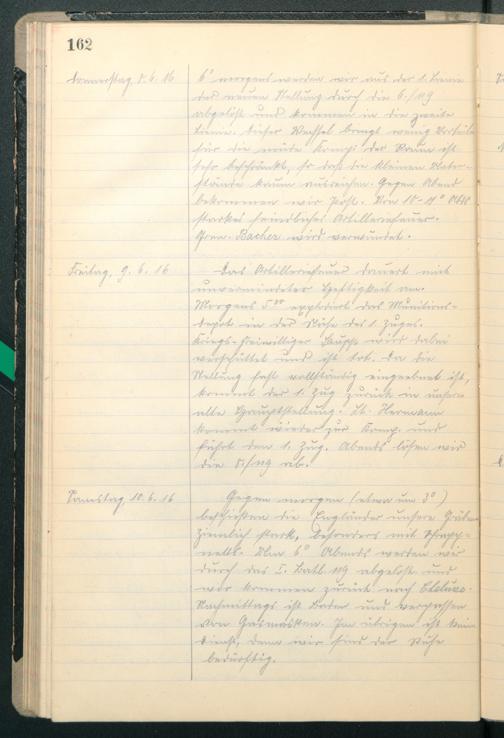 162
Donnerstag, 8.6.16
6° morgens werden wir aus der 1. Linie
der neuen Stellung durch die 6./119
abgelöst und kommen in die zweite
Linie. Dieser Wechsel bringt wenig Vorteile
für die müde Komp. Der Raum ist
sehr beschränkt, so daß die kleinen Unter-
stände kaum ausreichen. Gegen Abend
bekommen wir Post. Von 10-11° Abds
starkes feindliches Artilleriefeuer.
Gren. Bacher wird verwundet.
Freitag, 9.6.16
Das Artilleriefeuer dauert mit
unverminderter Heftigkeit an.
Morgens 5°° explodiert das Munitions-
depot in der Nähe des 1. Zuges.
Kriegs-Freiwilliger wird dabei
verschüttet und ist tot. Da die
Stellung fast vollständig eingeebnet ist,
kommt der 1. Zug zurück in unsere
alte Hauptstellung. Lt. Hermann
kommt wieder zur Komp. und
führt den 1. Zug. Abends lösen wir
die /119 ab.
Samstag, 10.6.16
Gegen morgen (etwa um 3°)
beschießen die Engländer unsere Gräben
ziemlich stark, besonders mit Schrapp-
nells. Um 6° Abends werden wir
durch das I. Batl. 119 abgelöst und
wir kommen zurück nach
Nachmittags ist Baden und verpassen
von Gasmasken. Im übrigen ist kein
Dienst, denn wir sind der Ruhe
bedürftig.